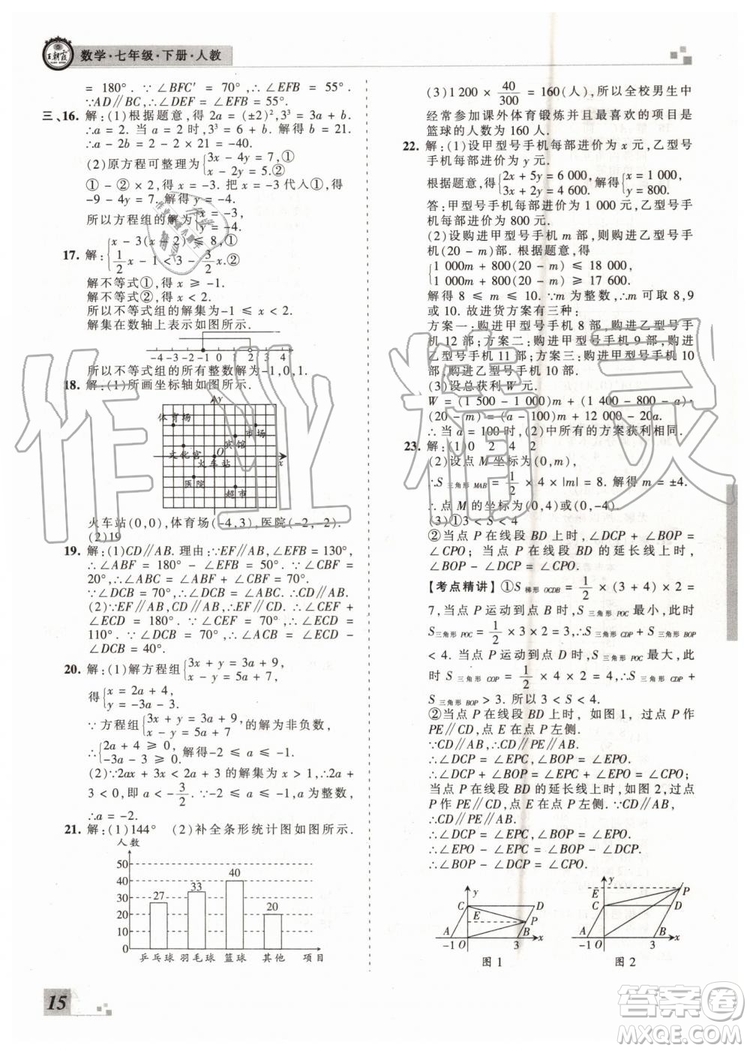 王朝霞
数学·七年级·下册·人教
= 180°. ∵∠BFC′ = ∠EFB,∴∠EFB = 55°.
∵AD∥BC,∴∠AEF = ∠EFB = 55°.
三、16. 解:(1)根据题意,得2a = (±2)²,3³ = 3a + b.
∴a = 2. 当 a = 2 时,3³ = 6 + b. 解得 b = 21.
∴a − 2b = 2 − 2 × 21 = −40.
(2)原方程可整理为{3x − 4y = 7,①
x − 4y = 1,②
① − ②,得 x = 3. 把 x = 3 代入①,得
9 − 4y =
所以方程组的解为
17. 解:{x − 3(x − 2) ≤ 8,①
1/2 x − 1 < 3 − 3/2 x.②
解不等式①,得 x ≥ −1.
解不等式②,得 x < 2.
所以不等式组的解集为 −1 ≤ x < 2.
解集在数轴上表示如图所示.
−4 −3 −2 −1 0 1 2 3 4
所以不等式组的所有整数解为 −1,0,1.
18. 解:(1)所画坐标轴如图所示.
y
体育场
市场
宾馆
文化宫
O
x
火车站
医院
超市
火车站(0,0),体育场(−4,3),医院(−2,−2).
(2)19
19. 解:(1)CD∥AB. 理由:∵EF∥AB,∠EFB = 130°,
∴∠ABF = 180° − ∠EFB = 50°.
∵∠CBF = 20°,∴∠ABC = ∠CBF + ∠ABF = 70°.
∵∠DCB = 70°,∴∠DCB = ∠ABC. ∴CD∥AB.
(2)∵EF∥AB,CD∥AB,∴EF∥CD. ∴∠CEF +
∠ECD = 180°. ∵∠CEF = 70°,∴∠ECD = 110°.
∵∠DCB = 70°,∴∠ACB = ∠ECD − ∠DCB
= 40°.
20. 解:(1)解方程组{3x + y = 3a + 9,
x − y = 5a + 7,
得{x = 2a + 4,
y = −3a − 3.
∵方程组{3x + y = 3a + 9,
x − y = 5a + 7 的解为非负数,
∴{2a + 4 ≥ 0,
−3a − 3 ≥ 0. 解得 −2 ≤ a ≤ −1.
(2)∵2ax + 3x < 2a + 3 的解集为 x > 1,
∴2a + 3 < 0,即 a < −3/2. 又∵−2 ≤ a ≤ −1,
∴a = −2.
21. 解:(1)144° (2)补全条形统计图如图所示.
人数
50
40
30
20
10
0
27
33
40
20
乒乓球 羽毛球 篮球 其他 项目
15
(3)1 200 × 40/300 = 160(人). 所以全校男生中
经常参加课外体育锻炼并且最喜欢的项目是
篮球的人数为 160 人.
22. 解:(1)设甲型号手机每部进价为 x 元,乙型号手
机每部进价为 y 元.
根据题意,得{2x + 5y = 6 000,
3x + 2y = 4 600.解得{x = 1 000,
y = 800.
答:甲型号手机每部进价为 1 000 元,乙型号手
机每部进价为 800 元.
(2)设购进甲型号手机 m 部,则购进乙型号手
机(20 − m)部. 根据题意,得
{1 000m + 800(20 − m) ≤ 18 000,
1 000m + 800(20 − m) ≥ 17 600.
解得 8 ≤ m ≤ 10. ∵m 为整数,∴m 可取 8,9
或 10. 故进货方案有三种:
方案一:购进甲型号手机 8 部,购进乙型号手
机 12 部;方案二:购进甲型号手机 9 部,购进
乙型号手机 11 部;方案三:购进甲型号手机
10 部,购进乙型号手机 10 部.
(3)设总获利 W 元.
W = (1 500 − 1 000)m + (1 400 − 800 − a) ·
(20 − m) = (a − 100)m + 12 000 − 20a.
∴当 a = 100 时,(2)中所有的方案获利相同.
23. 解:(1)0 2 4 2
(2)设点 M 坐标为(0,m),
∵S 三角形 MAB = 1/2 × 4 × |m| = 8. 解得 m = ±4.
∴点 M 坐标为(0,4)或(0,−4).
(3)①3 < S < 4
②当点 P 在线段 BD 上时,∠DCP + ∠BOP =
∠CPO;当点 P 在线段 BD 的延长线上时,
∠BOP − ∠DCP = ∠CPO.
【考点精讲】①S 梯形 OCDB = 1/2 × (3 + 4) × 2 =
7,当点 P 运动到点 B 时,S 三角形 POC 最小,此时
S 三角形 POC = 1/2 × 3 × 2 = 3,S 三角形 CDP + S 三角形 BOP
< 4. 当点 P 运动到点 D 时,S 三角形 POC 最大,此
时 S 三角形 POC = 1/2 × 4 × 2 = 4,S 三角形 CDP +
S 三角形 BOP > 3. 所以 3 < S < 4.
②当点 P 在线段 BD 上时,如图 1,过点 P 作
PE∥CD 交 y 轴于点 E,点 E 在点 P 左侧.
∵CD∥AB,∴PE∥AB∥CD.
∴∠DCP = ∠EPC,∠BOP = ∠EPO.
∴∠DCP + ∠BOP = ∠EPC + ∠EPO = ∠CPO.
当点 P 在线段 BD 的延长线上时,如图 2,过点
P 作 PE∥CD,点 E 在点 P 左侧.
∵CD∥AB,∴PE∥AB∥CD.
∴∠DCP = ∠EPC,∠BOP = ∠EPO.
∴∠BOP − ∠DCP = ∠EPO − ∠EPC = ∠CPO.
y
C
D
E
P
A
B
−1 O 3 x
图 1
y
E
P
C
D
A
B
−1 O 3 x
图 2
作业精灵
答案卷
MXQE.COM